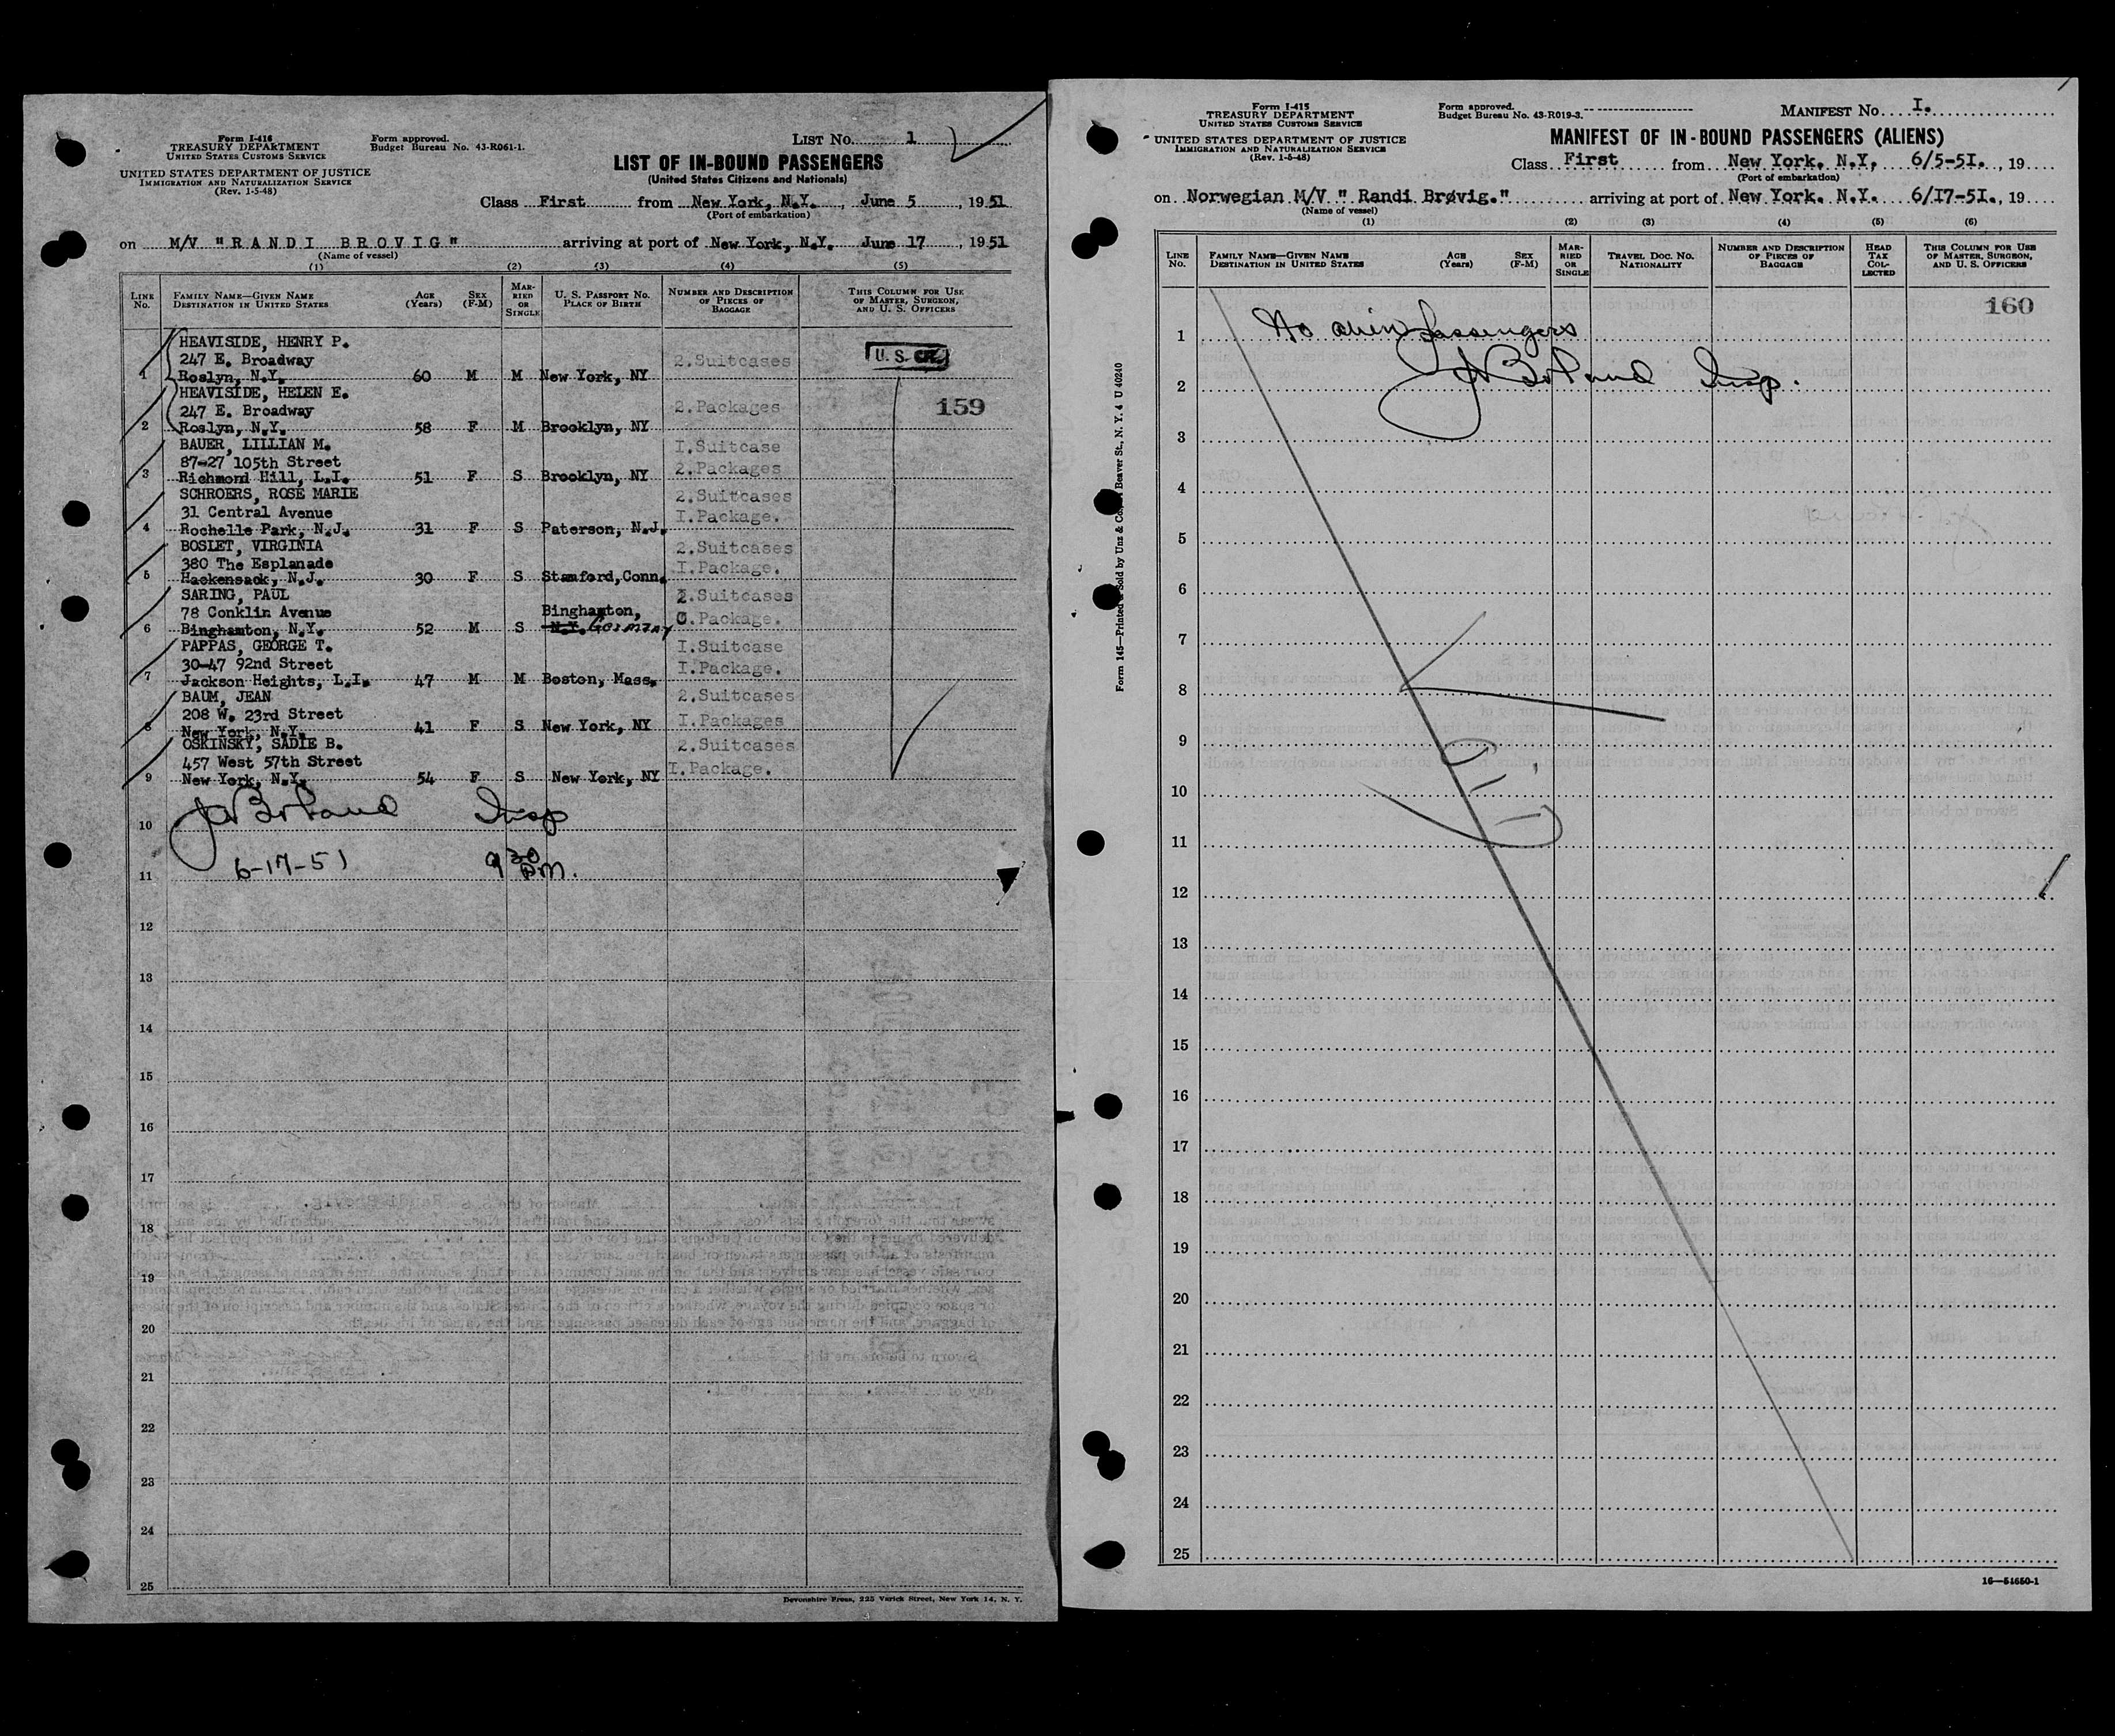 Form I-416
TREASURY DEPARTMENT
UNITED STATES CUSTOMS SERVICE
UNITED STATES DEPARTMENT OF JUSTICE
IMMIGRATION AND NATURALIZATION SERVICE
(Rev. 1-5-48)
Form approved.
Budget Bureau No. 43-R061-1.
LIST No. 1
LIST OF IN-BOUND PASSENGERS
(United States Citizens and Nationals)
Class First from New York, N.Y., June 5, 1951
(Port of embarkation)
on M/V "RANDI BROVIG" arriving at port of New York, N.Y. June 17, 1951
(Name of vessel)
(1) (2) (3) (4) (5)
LINE No. FAMILY NAME—GIVEN NAME DESTINATION IN UNITED STATES AGE (Years) SEX (F-M) MARRIED OR SINGLE U. S. PASSPORT No. PLACE OF BIRTH NUMBER AND DESCRIPTION OF PIECES OF BAGGAGE THIS COLUMN FOR USE OF MASTER, SURGEON, AND U. S. OFFICERS
HEAVISIDE, HENRY P.
247 E. Broadway 2.Suitcases U. S. CIT.
1 Roslyn, N.Y. 60 M M New York, NY
HEAVISIDE, HELEN E.
247 E. Broadway 2.Packages 159
2 Roslyn, N.Y. 58 F M Brooklyn, NY
BAUER, LILLIAN M. I.Suitcase
87-27 105th Street 2.Packages
3 Richmond Hill, L.I. 51 F S Brooklyn, NY
SCHROERS, ROSE MARIE 2.Suitcases
31 Central Avenue I.Package.
4 Rochelle Park, N.J. 31 F S Paterson, N.J.
BOSLET, VIRGINIA 2.Suitcases
380 The Esplanade I.Package.
5 Hackensack, N.J. 30 F S Stamford,Conn.
SARING, PAUL 2.Suitcases
78 Conklin Avenue Binghamton, 0.Package.
6 Binghamton, N.Y. 52 M S N.Y. Germany
PAPPAS, GEORGE T. I.Suitcase
30-47 92nd Street I.Package.
7 Jackson Heights, L.I. 47 M M Boston, Mass.
BAUM, JEAN 2.Suitcases
208 W. 23rd Street I.Packages
8 New York, N.Y. 41 F S New York, NY
OSKINSKY, SADIE B. 2.Suitcases
457 West 57th Street I.Package.
9 New York, N.Y. 54 F S New York, NY
10 Insp
11 6-17-51 9 30 P.M.
12
13
14
15
16
17
18
19
20
21
22
23
24
25
Devonshire Press, 225 Varick Street, New York 14, N. Y.
Form I-415
TREASURY DEPARTMENT
UNITED STATES CUSTOMS SERVICE
UNITED STATES DEPARTMENT OF JUSTICE
IMMIGRATION AND NATURALIZATION SERVICE
(Rev. 1-5-48)
Form approved.
Budget Bureau No. 43-R019-3.
MANIFEST No. I.
MANIFEST OF IN-BOUND PASSENGERS (ALIENS)
Class First from New York. N.Y, 6/5-5I., 19
(Port of embarkation)
on Norwegian M/V " Randi Brøvig." arriving at port of New York. N.Y. 6/I7-5I., 19
(Name of vessel)
(1) (2) (3) (4) (5) (6)
LINE No. FAMILY NAME—GIVEN NAME DESTINATION IN UNITED STATES AGE (Years) SEX (F-M) MARRIED OR SINGLE TRAVEL DOC. No. NATIONALITY NUMBER AND DESCRIPTION OF PIECES OF BAGGAGE HEAD TAX COLLECTED THIS COLUMN FOR USE OF MASTER, SURGEON, AND U. S. OFFICERS
160
1 No alien passengers
2 Insp.
3
4
5
6
7
8
9
10
11
12
13
14
15
16
17
18
19
20
21
22
23
24
25
16—54650-1